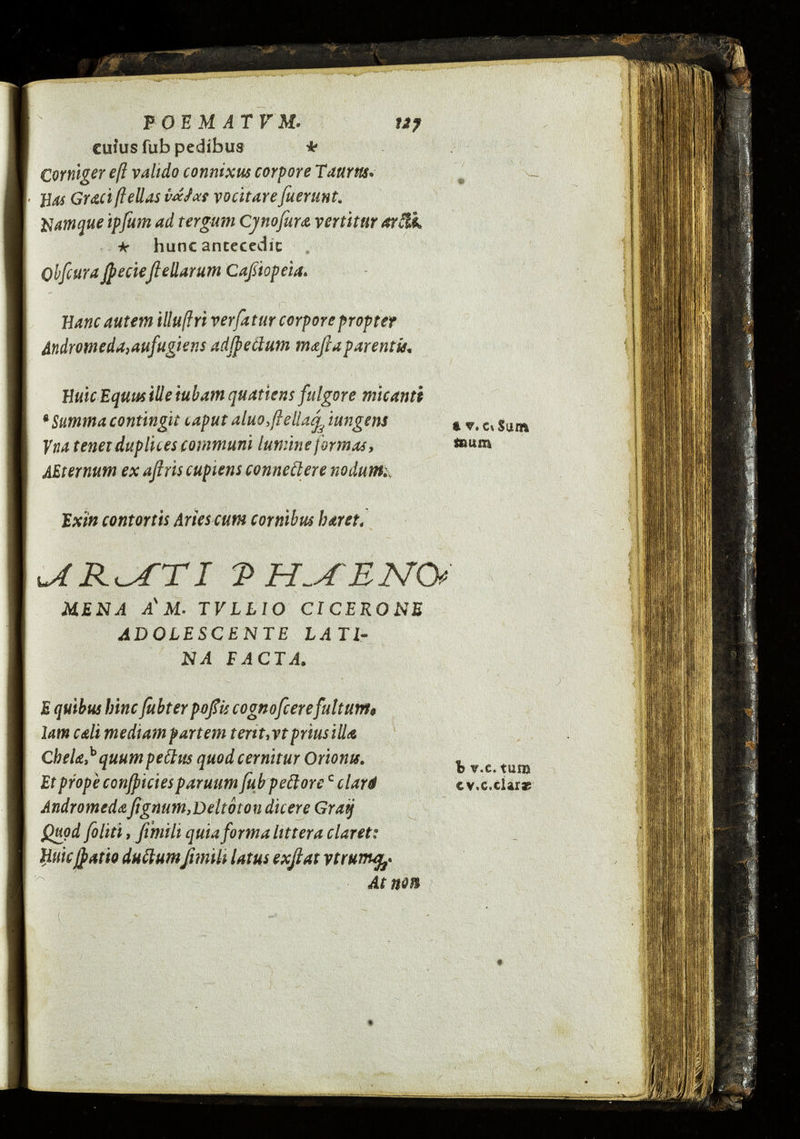 POEMATVM. 127
cuius sub pedibus *
Corniger est valido connixus corpore Taurus.
Has Græci stellas ὑάδας vocitare fuerunt.
Namque ipsum ad tergum Cynosuræ vertitur arcti.
* hunc antecedit
Obscura specie stellarum Cassiopeia.
Hanc autem illustri versatur corpore propter
Andromeda, aufugiens adspectum mæsta parentis.
Huic Equus ille iubam quatiens fulgore micanti
ᵃ Summa contingit caput aluo, stellaq; iungens
Vna tenet duplices communi lumine formas,
AEternum ex astris cupiens connectere nodum.
Exin contortis Aries cum cornibus hæret.
ARATI PHAENO-
MENA A` M. TVLLIO CICERONE
ADOLESCENTE LATI-
NA FACTA.
E quibus hinc subter possis cognoscere fultum.
Iam cæli mediam partem terit, vt prius illæ
Chelæ, ᵇ quum pectus quod cernitur Orionis.
Et prope conspicies paruum sub pectore ᶜ claro
Andromedæ signum, Deltoton dicere Graij
Quod soliti, simili quia forma littera claret:
Huic spatio ductum simili latus exstat vtrumq;.
At non
a v. c. Sum
mum
b v.c. tum
c v.c. claræ